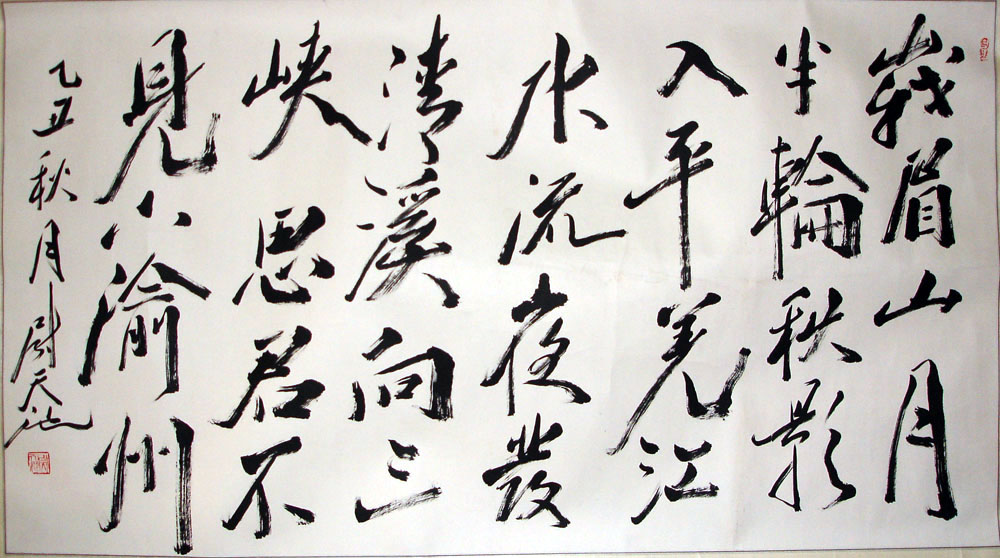 峩眉山月
半輪秋影
入平羌江
水流夜發
清溪向三
峡思君不
見下渝州
乙丑秋月尉天池